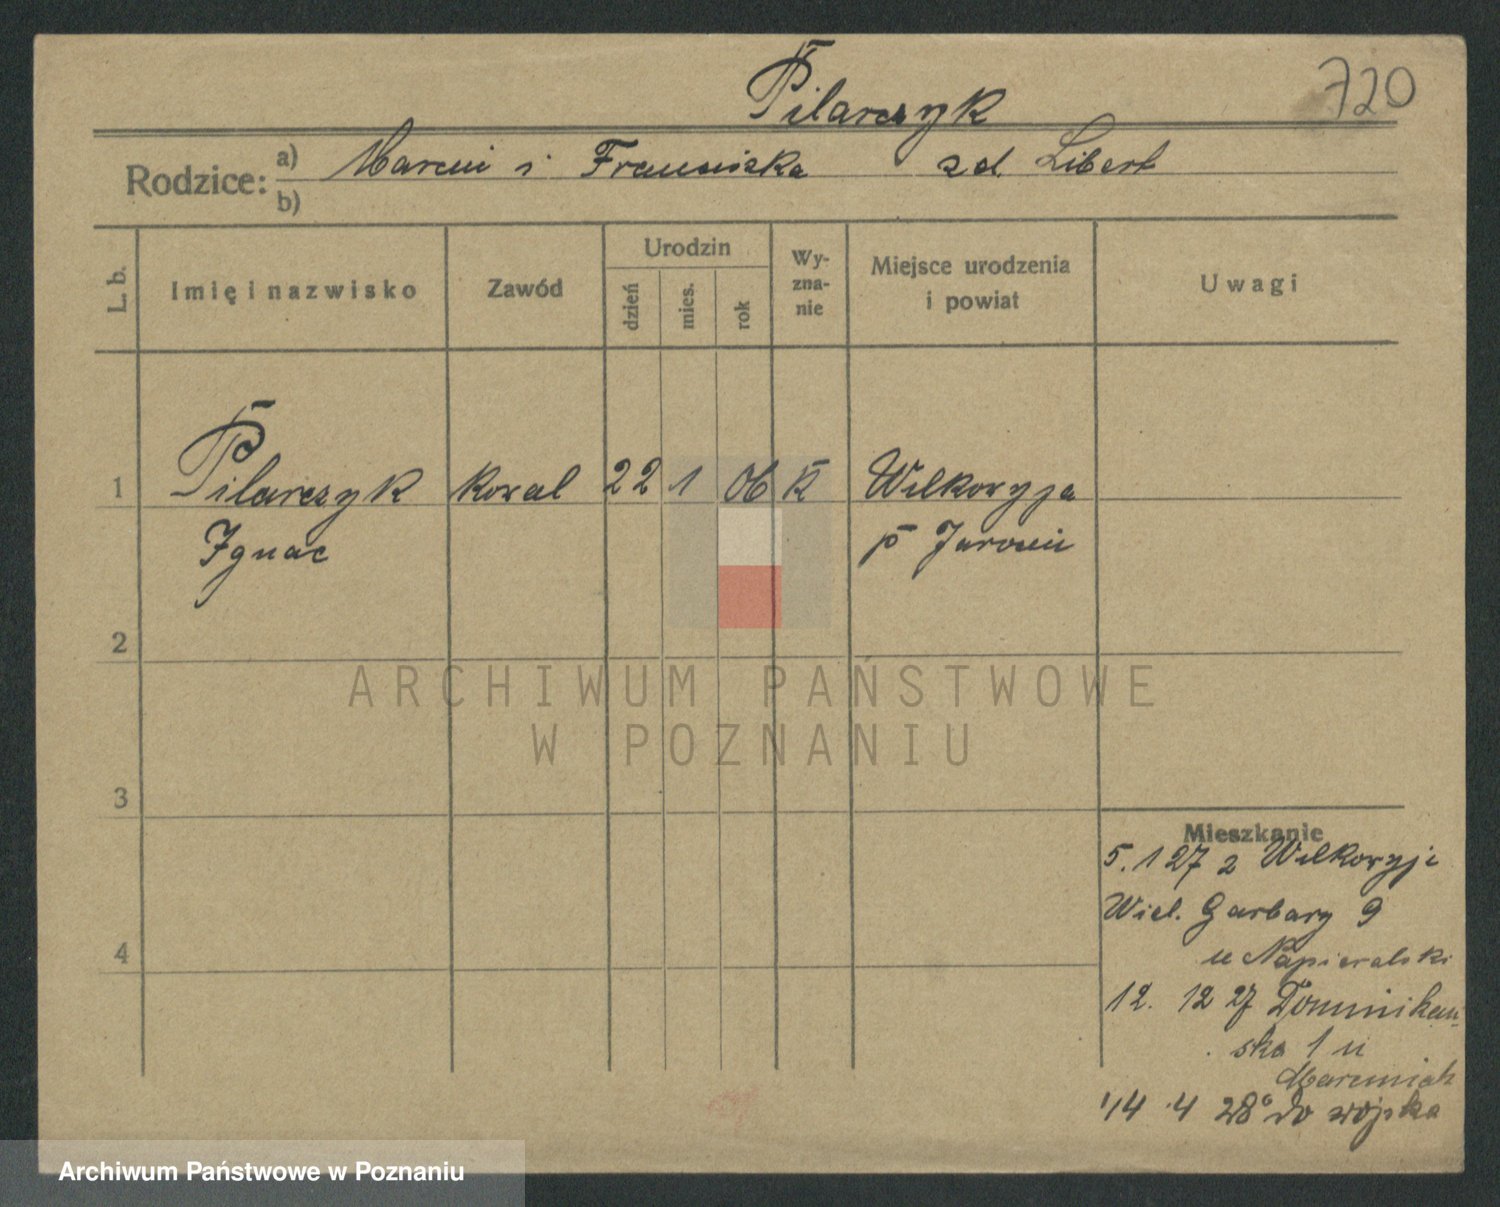 720
Pilarczyk
Rodzice: a) Marcin i Franciszka zd. Libert
b)
L. b. Imię i nazwisko Zawód Urodzin dzień mies. rok Wyznanie Miejsce urodzenia i powiat Uwagi
1 Pilarczyk kowal 22 1 06 K Wilkowyja
Ignac p Jarocin
2
3
4
Mieszkanie
5. 1 27 z Wilkowyji
Wiel. Garbary 9
u Napieralski
12. 12 27 Dominikań-
ska 1 u
Marciniak
14 4 28 do wojska
ARCHIWUM PAŃSTWOWE
W POZNANIU
Archiwum Państwowe w Poznaniu